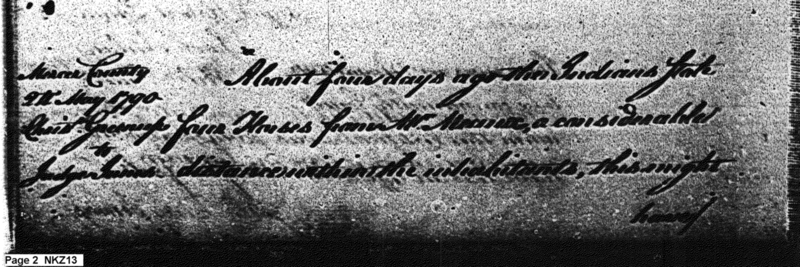 Mercer County
8th May 1790
Christ. Greenup
to
Judge Innes
About four days ago the Indians stole
four Horses from Mr. Meaux, a considerable
distance within the inhabitants, this night
have
Page 2 NKZ13